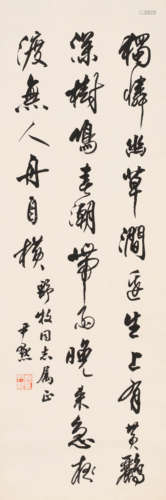 獨憐幽草澗邊生上有黃鸝
深樹鳴春潮帶雨晚來急野
渡無人舟自橫
野牧同志属正
尹默